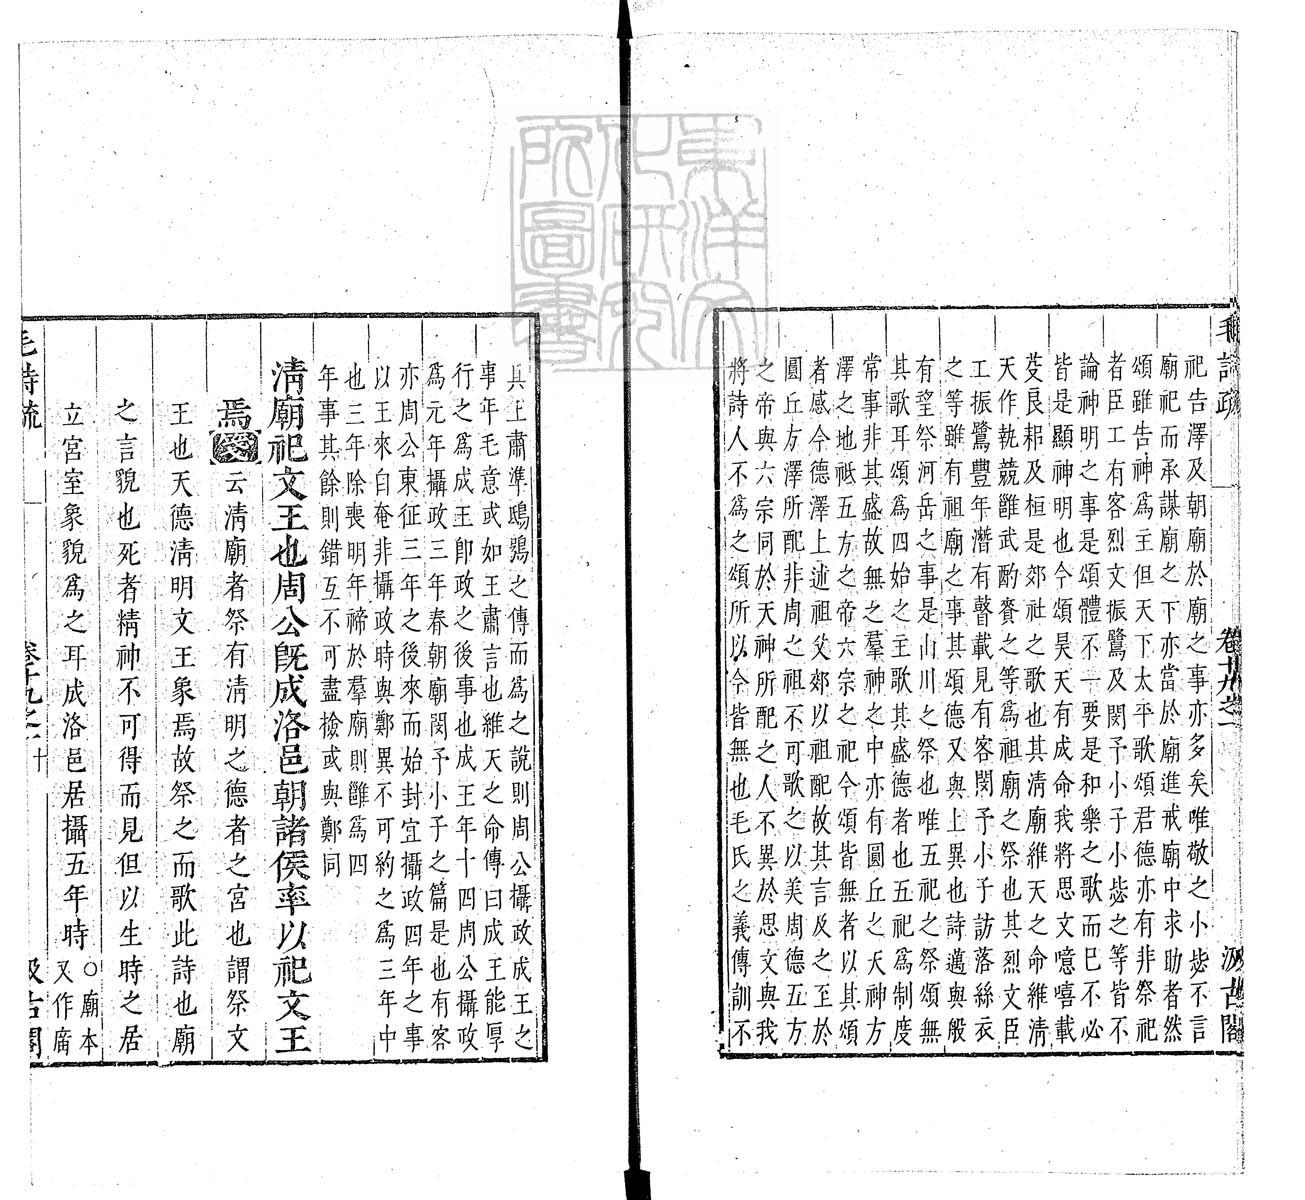 毛詩疏 卷十九之一 汲古閣
祀告澤及朝廟於廟之事亦多矣唯敬之小毖不言
廟祀而承謀廟之下亦當於廟進戒廟中求助者然
頌雖告神爲主但天下太平歌頌君德亦有非祭祀
者臣工有客烈文振鷺及閔予小子小毖之等皆不
論神明之事是頌體不一要是和樂之歌而已不必
皆是顯神明也今頌昊天有成命我將思文噫嘻載
芟良耜及桓是郊社之歌也其清廟維天之命維清
天作執競雝武酌賚之等爲祖廟之祭也其烈文臣
工振鷺豐年潛有瞽載見有客閔予小子訪落絲衣
之等雖有祖廟之事其頌德又與上異也詩邁與般
有望祭河岳之事是山川之祭也唯五祀之祭頌無
其歌耳頌爲四始之主歌其盛德者也五祀爲制度
常事非其盛故無之羣神之中亦有圜丘之天神方
澤之地祇五方之帝六宗之祀今頌皆無者以其頌
者感今德澤上述祖父郊以祖配故其言及之至於
圜丘方澤所配非周之祖不可歌之以美周德五方
之帝與六宗同於天神所配之人不異於思文與我
將詩人不爲之頌所以今皆無也毛氏之義傳訓不
具上肅準鴟鴞之傳而爲之說則周公攝政成王之
事年毛意或如王肅言也維天之命傳曰成王能厚
行之爲成王卽政之後事也成王年十四周公攝政
爲元年攝政三年春朝廟閔予小子之篇是也有客
亦周公東征三年之後來而始封宜攝政四年之事
以王來自奄非攝政時與鄭異不可約之爲三年中
也三年除喪明年禘於羣廟則雝爲四
年事其餘則錯互不可盡檢或與鄭同
清廟祀文王也周公旣成洛邑朝諸侯率以祀文王
焉箋云清廟者祭有清明之德者之宮也謂祭文
王也天德清明文王象焉故祭之而歌此詩也廟
之言貌也死者精神不可得而見但以生時之居
立宮室象貌爲之耳成洛邑居攝五年時○廟本
又作庿
毛詩疏 卷十九之一 十 汲古閣
東洋文化研究所圖書